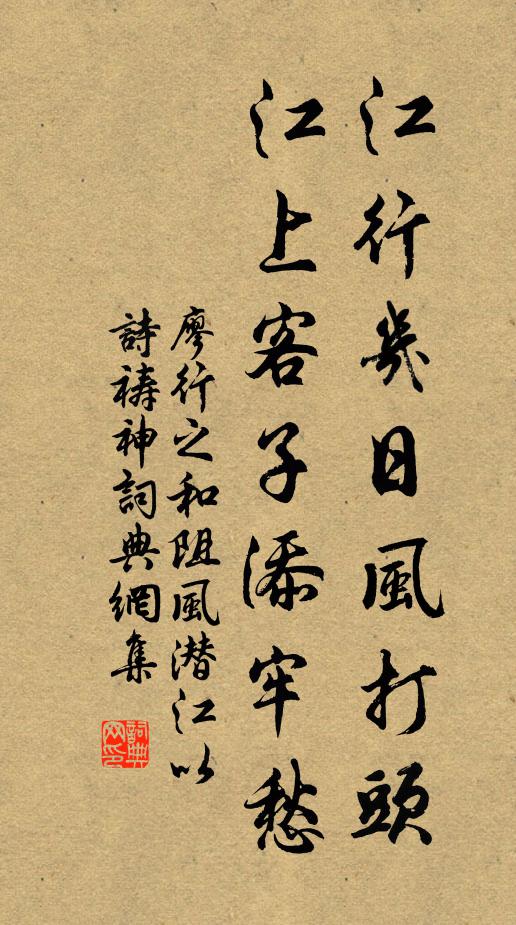 江行幾日風打頭
江上客子添牢愁
廖行之和阻風潛江以
詩禱神詞典網集
詞典網印